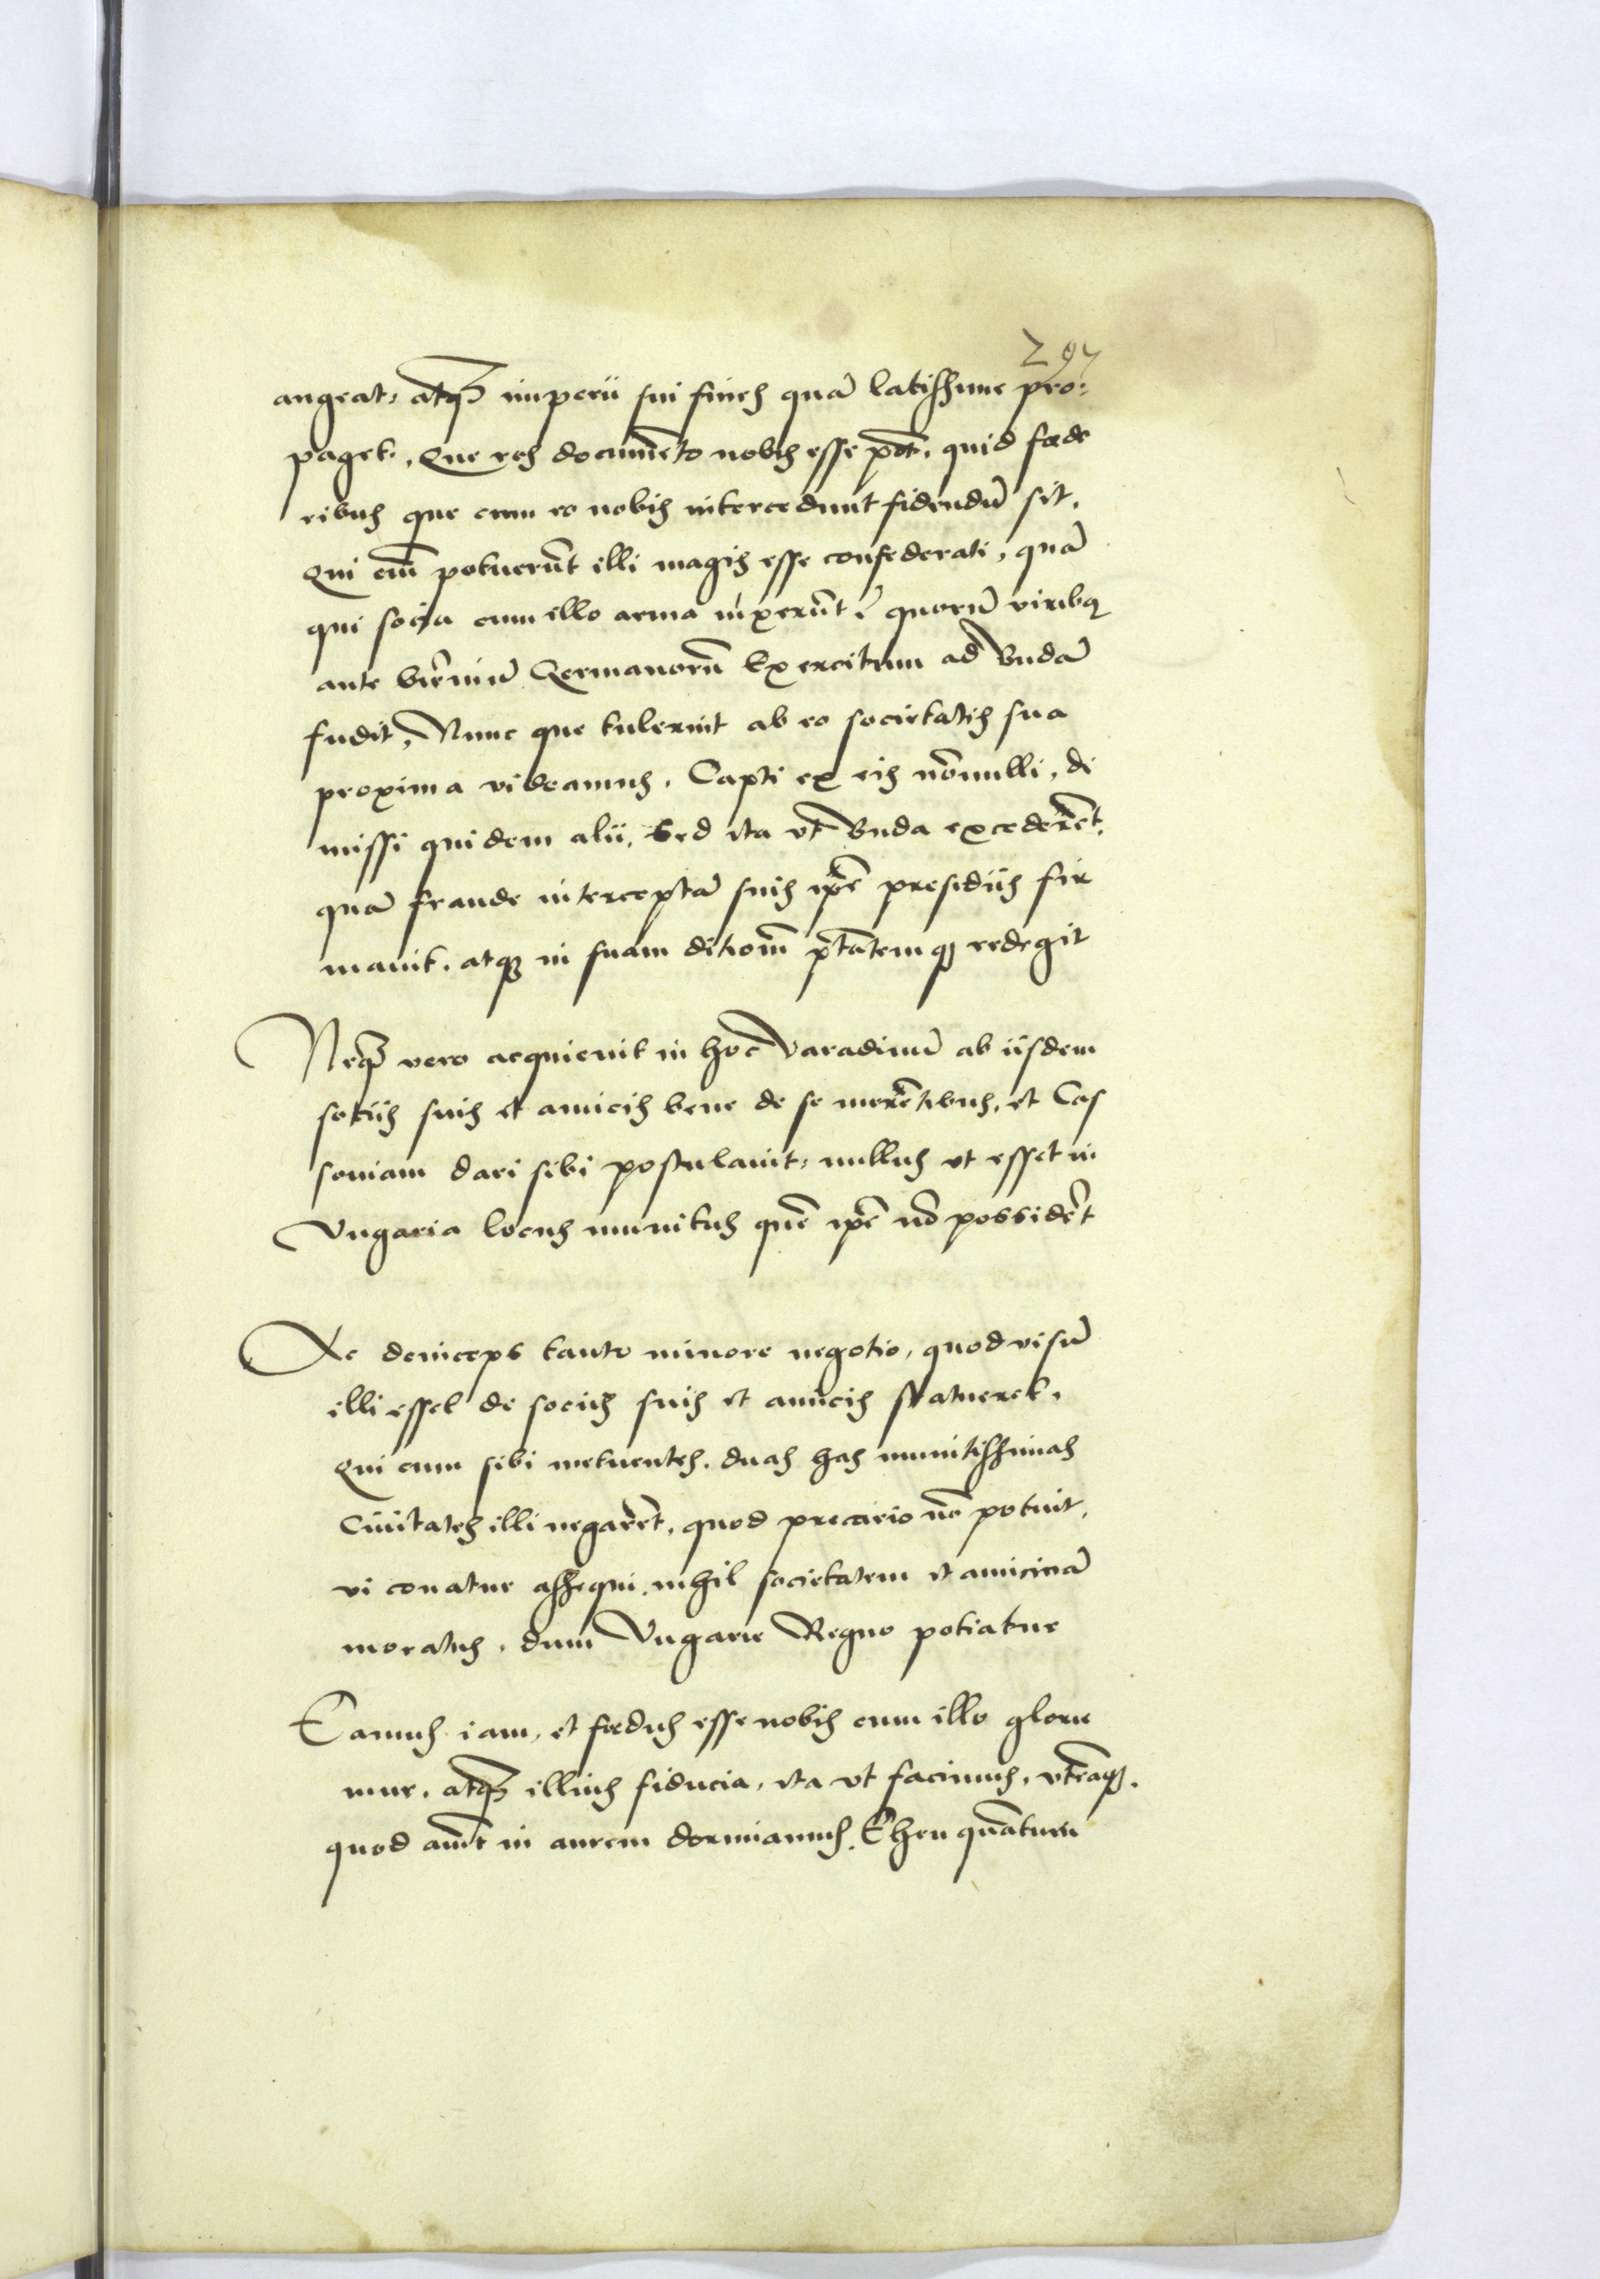 297
augeat, atqꝫ imperii sui fines quā latissime pro:
paget. Que res documēto nobis esse pōt, quid foede
ribus que cum eo nobis intercedunt fidendū sit.
Qui em̄ potuerūt illi magis esse confederati, quā
qui socia cum illo arma iūxerūt? quorū viribꝫ
ante biēniū Germanorū Exercitum ad Budā
fudit, Nunc que tulerint ab eo societatis sua
proxima videamus. Capti ex eis nōnulli, di
missi quidem alii, Sed ita vt Buda excederēt,
quā fraude interceptā suis ip̄e presidiis fir
mauit, atqꝫ in suam ditionē p̄tātemqꝫ redegit
Neqꝫ vero acquieuit in hoc Varadinū ab iisdem
sociis suis et amicis bene de se merētibus, et Cas
soniam dari sibi postulauit, nullus vt esset in
Vngaria locus munitus quē ip̄e nō possidēt
Ac deinceps tanto minore negotio, quod visū
illi esset de sociis suis et amicis statueret.
Qui cum sibi metuentes, duas has munitissimas
Ciuitates illi negarēt, quod precario nō potuit,
vi conatur assequi, nihil societatem et amiciciā
moratus, dum Vngarie Regno potiatur
Eamus iam, et foedus esse nobis cum illo glorie
mur, atqꝫ illius fiducia, ita vt facimus, vtrāqꝫ.
quod aiūt in aurem dormiamus. Eheu quātum